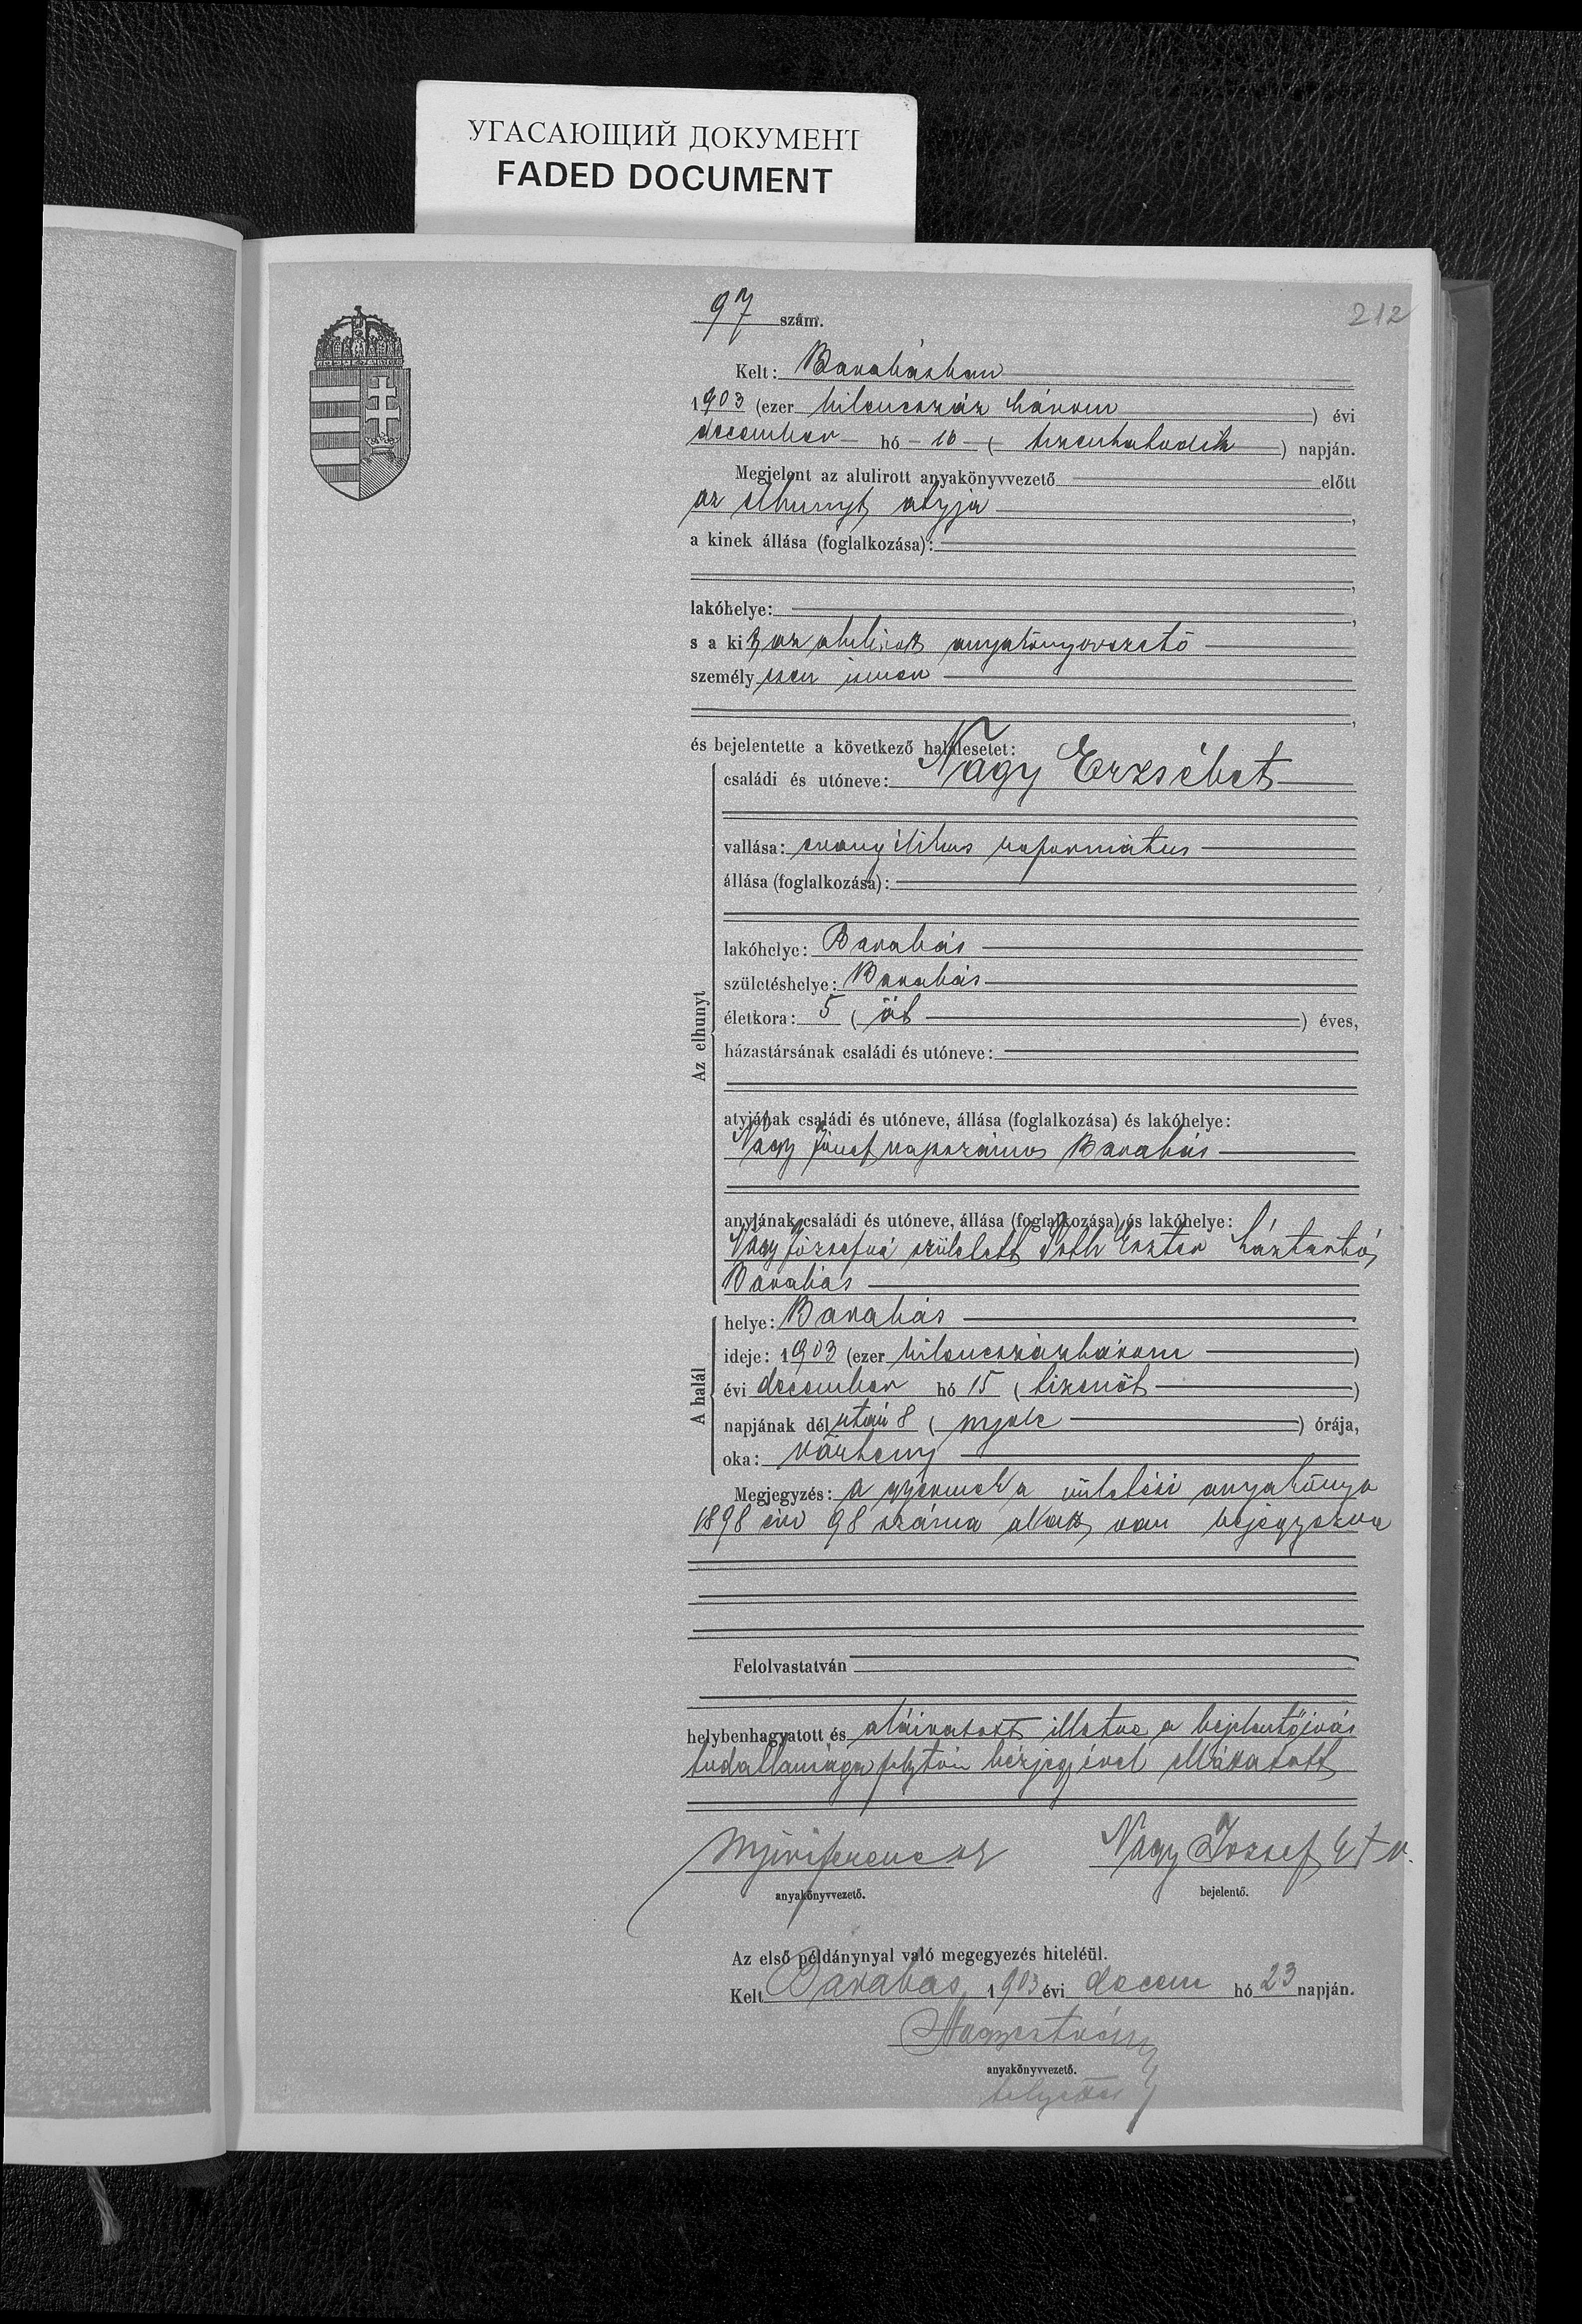 УГАСАЮЩИЙ ДОКУМЕНТ
FADED DOCUMENT
212
97 szám.
Kelt: Barabásban
1903 (ezer kilenczszáz három) évi
december hó 16 (tizenhatodik) napján.
Megjelent az alulirott anyakönyvvezető előtt
az elhunyt atyja,
a kinek állása (foglalkozása):
lakóhelye:
s a kit az alulirott anyakönyvvezető
személyesen ismer
és bejelentette a következő halálesetet:
Az elhunyt
családi és utóneve: Nagy Erzsébet
vallása: evangélikus református
állása (foglalkozása):
lakóhelye: Barabás
születéshelye: Barabás
életkora: 5 (öt) éves,
házastársának családi és utóneve:
atyjának családi és utóneve, állása (foglalkozása) és lakóhelye:
Nagy József napszámos Barabás
anyjának családi és utóneve, állása (foglalkozása) és lakóhelye:
Nagy Józsefné született Tóth Eszter háztartó,
Barabás
A halál
helye: Barabás
ideje: 1903 (ezer kilenczszázhárom)
évi december hó 15 (tizenöt)
napjának dél után 8 (nyolc) órája,
oka: várheny
Megjegyzés: a gyermek a születési anyakönyv
1898 évi 98 száma alatt van bejegyezve
Felolvastatván
helybenhagyatott és aláiratott illetve a bejelentő irás
tudatlansága folytán kézjegyével elláttatott
Nagy József k+v.
anyakönyvvezető.
bejelentő.
Az első példánynyal való megegyezés hiteléül.
Kelt Barabás, 1903 évi decem hó 23 napján.
anyakönyvvezető.
helyettes